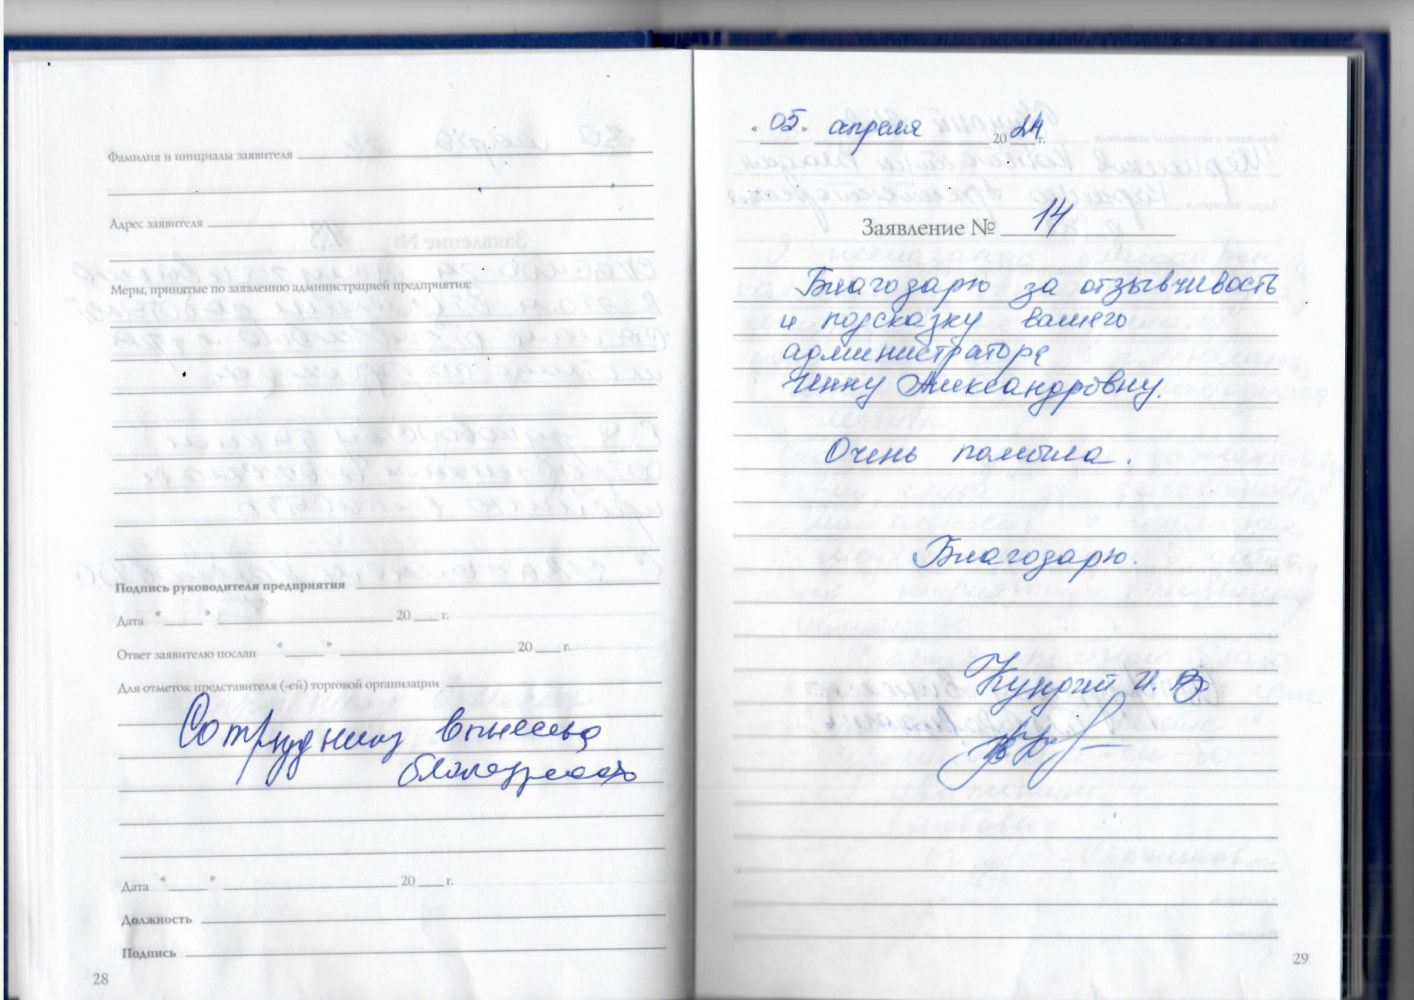 Фамилия и инициалы заявителя
Адрес заявителя
Меры, принятые по заявлению администрацией предприятия:
Подпись руководителя предприятия
Дата « » 20 г.
Ответ заявителю послан « » 20 г.
Для отметок представителя (-ей) торговой организации
Сотруднику вынесена
благодарность
Дата « » 20 г.
Должность
Подпись
28
« 05 » апреля 2024 г.
Заявление № 14
Благодарю за отзывчивость
и подсказку вашего
администратора
Александровну.
Очень помогла.
Благодарю.
И. В.
29